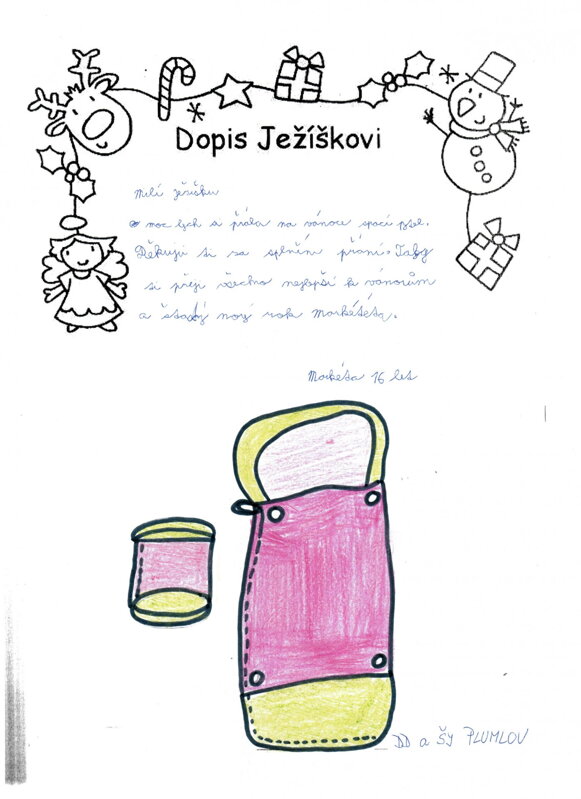 Dopis Ježíškovi
Milí ježíšku
moc bych si přála na vánoce spací pytel.
Děkuji si za splněním přání. Taky
si přeji všechno nejlepší k vánocům
a šťastný nový rok Markétěta.
Markéta 16 let
DD a ŠJ PLUMLOV